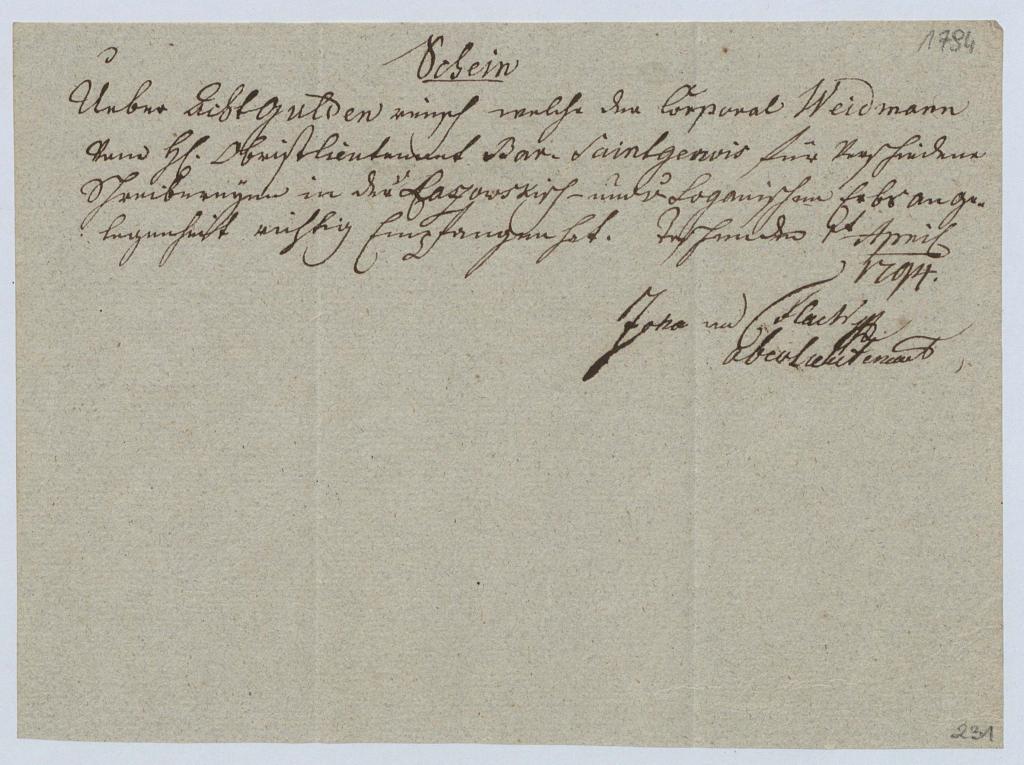 1794
Schein
Ueber Acht Gulden reinsch welche der Corporal Weidmann
vom H. Obristlieutenant Bar. Saintgenois für Verschiedene
Schreibereyen in der Lazowskisch- und Loganischen Erbs ange-
legenheit richtig Empfangen hat. Teschen den April
1794.
Flach
Oberlieutenant
231